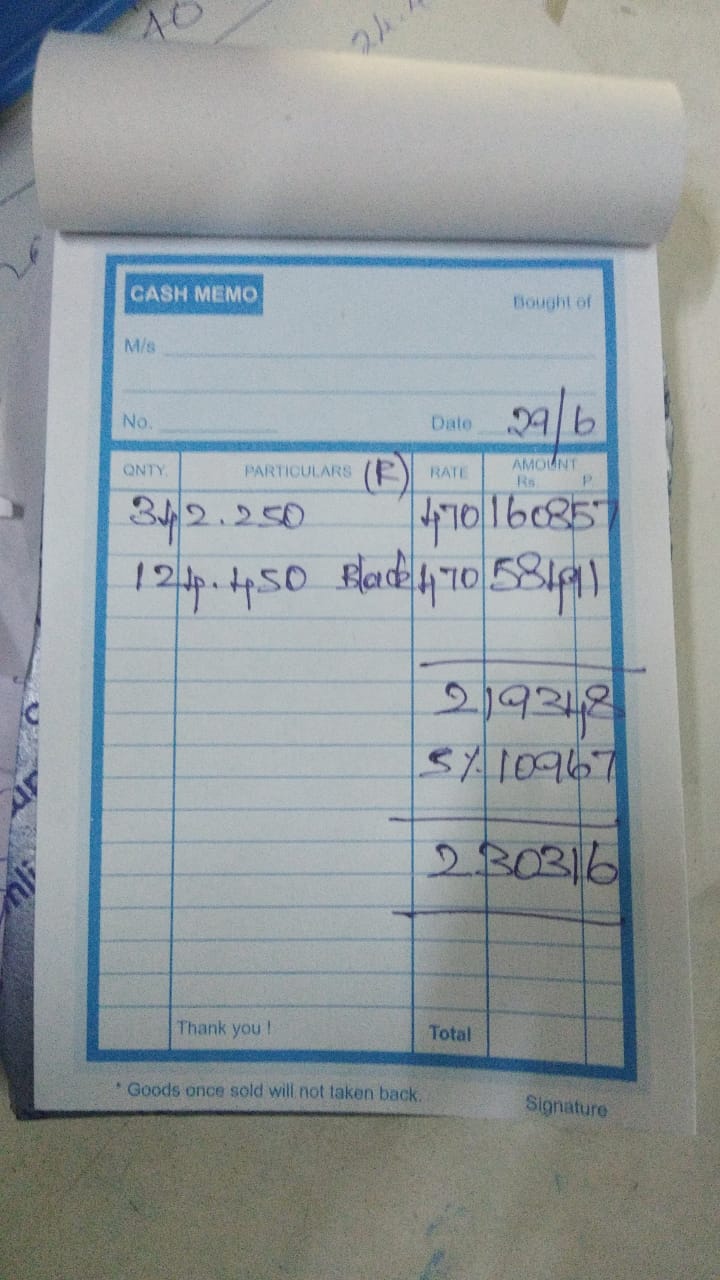 CASH MEMO
Bought of
M/s
No. Date 29/6
QNTY. PARTICULARS (R) RATE AMOUNT
Rs P.
342.250 470 160857
124.450 Black 470 58491
219348
5% 10967
230316
Thank you ! Total
* Goods once sold will not taken back.
Signature